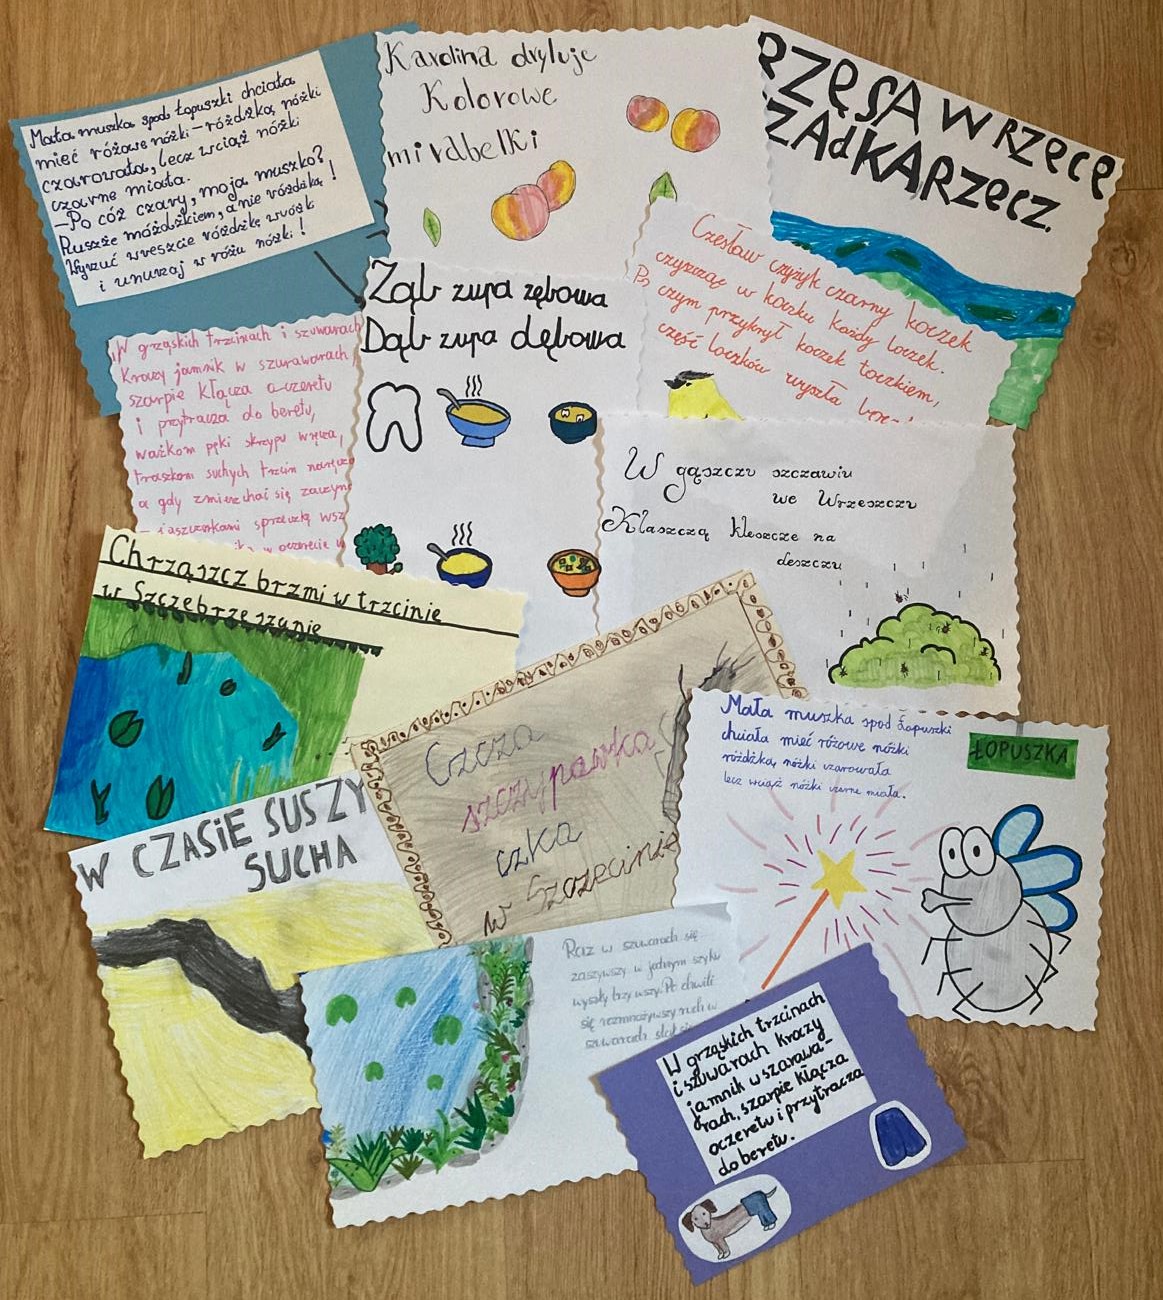 Mała muszka spod Łopuszki chciała
mieć różowe nóżki – różdżką nóżki
czarowała, lecz wciąż nóżki
czarne miała.
– Po cóż czary, moja muszko?
Ruszże móżdżkiem, a nie różdżką!
Wyrzuć wreszcie różdżkę wróżki
i unurzaj w różu nóżki!
Karolina dryluje
Kolorowe
mirabelki
RZĘSA W RZĘCE
RZADKA RZECZ.
Czesław czyżyk czarny koczek
czyszcząc w koczku każdy loczek.
Po czym przykrył koczek toczkiem,
część loczków wyszła
Ząb zupa zębowa
Dąb zupa dębowa
W grząskich trzcinach i szuwarach
Kroczy jamnik w szarawarach,
szarpie kłącza oczeretu
i przytracza do beretu,
ważkom pęki skrzypu wręcza,
traszkom suchych trzcin naręcza
a gdy zmierzchać się zaczyna
– jaszczurkami sprzeczkę wsz
w oczerecie w
W gąszczu szczawiu
we Wrzeszczu
Klaszczą kleszcze na
deszczu
Chrząszcz brzmi w trzcinie
w Szczebrzeszynie
Czcza
szczypawka
czka
w Szczecinie
Mała muszka spod Łopuszki
chciała mieć różowe nóżki
różdżką nóżki czarowała
lecz wciąż nóżki czarne miała.
ŁOPUSZKA
W CZASIE SUSZY
SUCHA
Raz w szuwarach się
zaszywszy w jednym szyku
wyszły trzy wszy. Po chwili
się rozmnożywszy ruch w
szuwarach
W grząskich trzcinach
i szuwarach kroczy
jamnik w szarawa-
rach, szarpie kłącza
oczeretu i przytracza
do beretu.